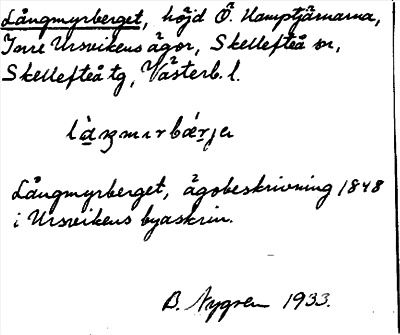 Långmyrberget, höjd Ö. Hamptjärnarna,
Inre Ursvikens ägor, Skellefteå sn,
Skellefteå tg, Västerb. l.
Långmyrberget, ägobeskrivning 1848
i Ursvikens byaskrin.
B. Nygren 1933.